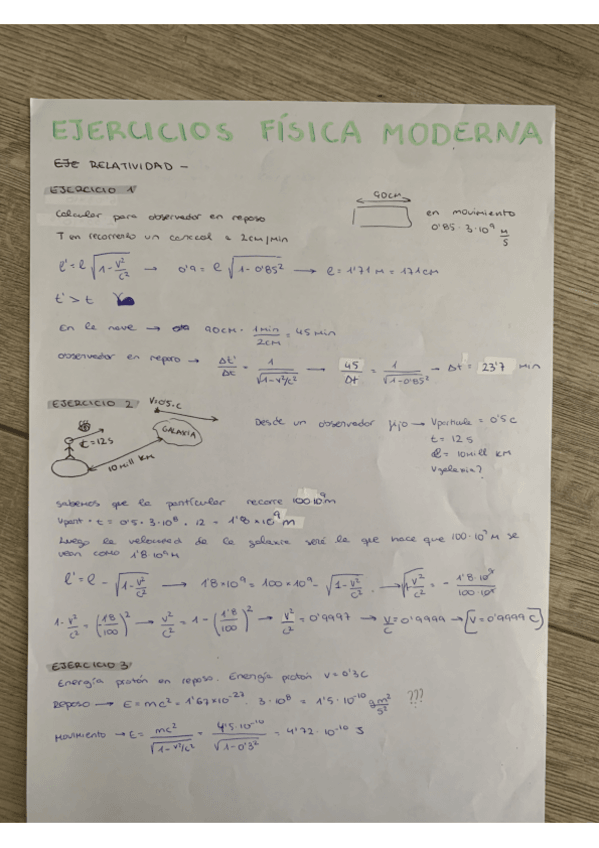 EJERCICIOS FÍSICA MODERNA
RELATIVIDAD -
EJERCICIO 1
90cm
Calcular para observador en reposo
en movimiento
0'85 · 3·10⁹ m/s
T en recorrerlo un caracol = 2cm/min
l' = l √(1 - v²/c²) → 0'9 = l √(1 - 0'85²) → l = 1'71 m = 171 cm
t' > t
En la nave → 90cm · 1min/2cm = 45 min
observador en reposo → Δt'/Δt = 1/√(1-v²/c²) → 45/Δt = 1/√(1-0'85²) → Δt = 23'7 min
EJERCICIO 2
V=0'5·C
t=12s
GALAXIA
10 Mill KM
Desde un observador fijo → Vpartícula = 0'5C
t = 12s
d = 10Mill KM
Vgalaxia?
sabemos que la partícular recorre 100·10⁹m
Vpart · t = 0'5 · 3·10⁸ · 12 = 1'8 × 10⁹ m
Luego la velocidad de la galaxia será la que hace que 100·10⁹ m se
vean como 1'8·10⁹ m
l' = l - √(1-v²/c²) → 1'8×10⁹ = 100×10⁹ - √(1-v²/c²) → √(1-v²/c²) = - 1'8·10⁹/100·10⁹
1-v²/c² = (1'8/100)² → v²/c² = 1 - (1'8/100)² → v²/c² = 0'9997 → v/c = 0'9999 → [V = 0'9999 C]
EJERCICIO 3
Energía protón en reposo. Energía protón v = 0'3C
Reposo → E = mc² = 1'67×10⁻²⁷ · 3·10⁸ = 1'5·10⁻¹⁰ gm²/s² ???
Movimiento → E = mc²/√(1-v²/c²) = 4'5·10⁻¹⁰/√(1-0'3²) = 4'72·10⁻¹⁰ J